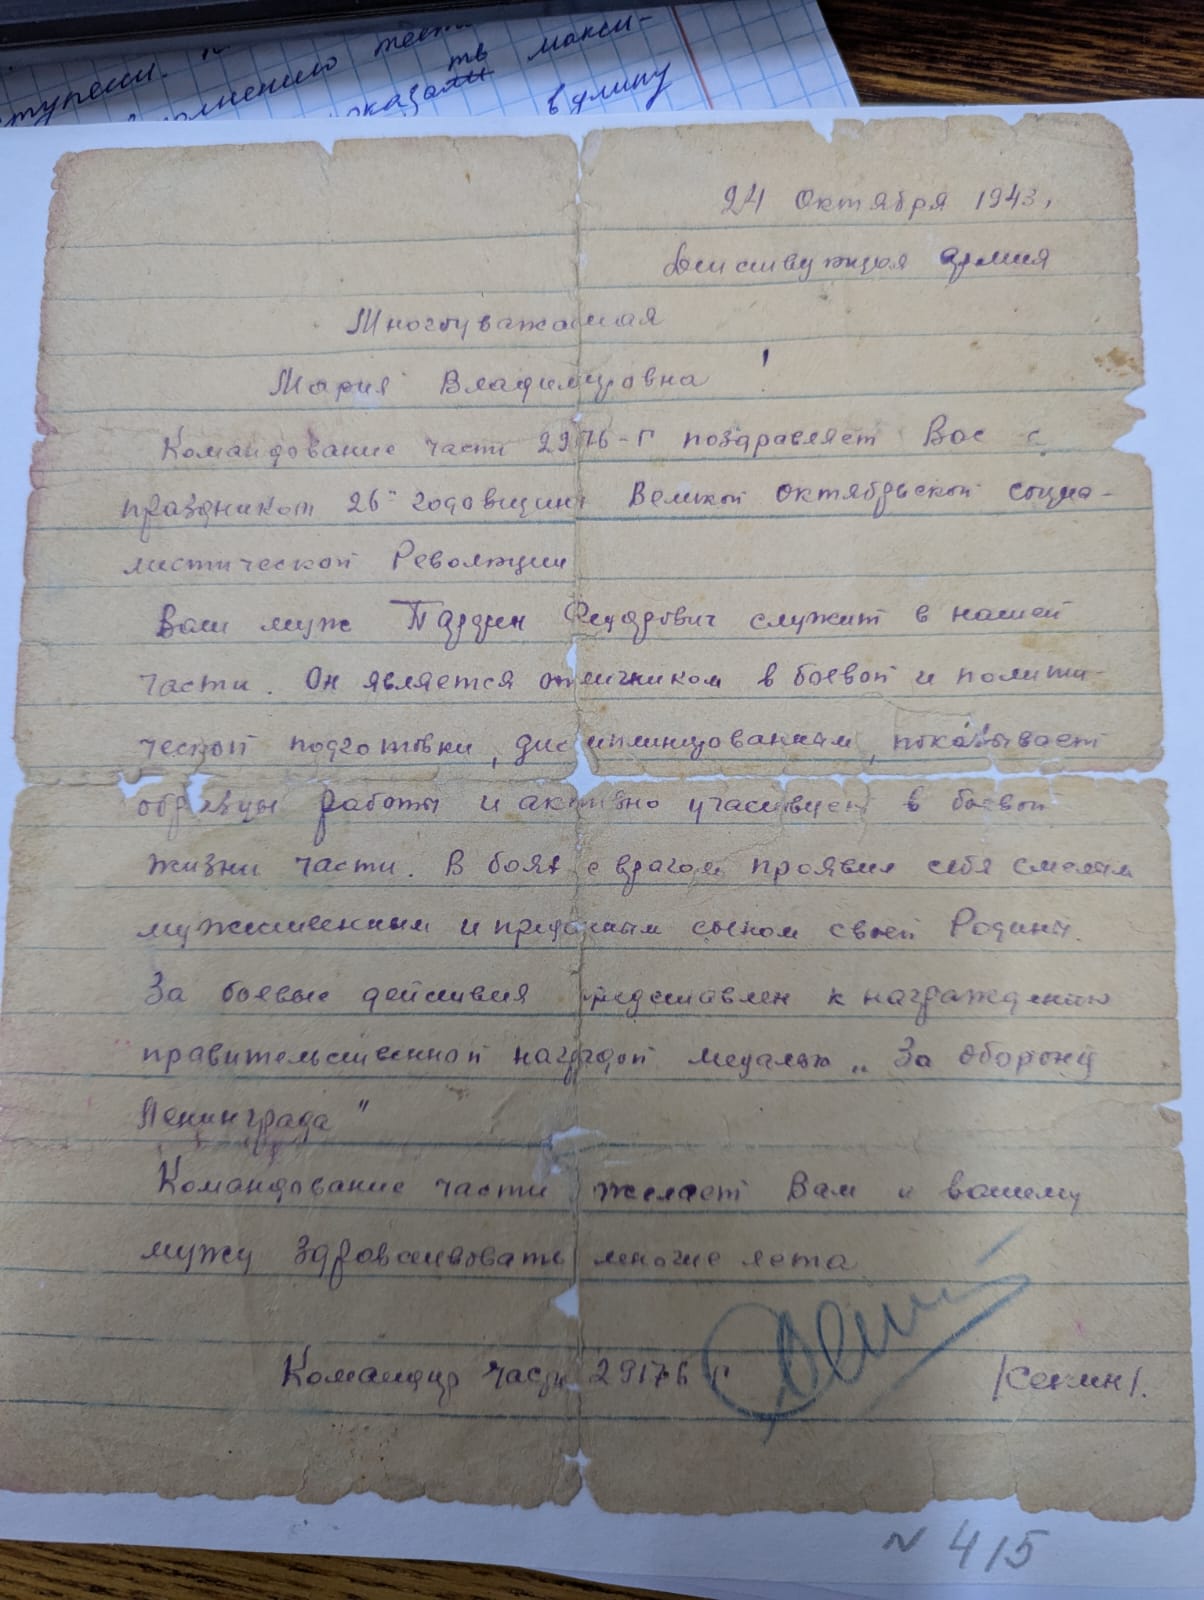 ступеси.
тв макси-
в длину
24 Октября 1943,
Действующая армия
Многоуважаемая
Мария Владимировна !
Командование части 29176-Г поздравляет Вас с
праздником 26й годовщины Великой октябрьской социа-
листической Революции
Ваш муж Федорович служит в нашей
части. Он является отличником в боевой и полити-
ческой подготовки, дисциплинированным, показывает
образцы работы и активно участвует в боевой
жизни части. В боях с врагом проявил себя смелым
мужественным и преданным сыном своей Родины.
За боевые действия представлен к награждению
правительственной наградой медалью „За оборону
Ленинграда"
Командование части желает Вам и вашему
мужу здравствовать многие лета
Командир части 29176 Г /Секин/.
N 415